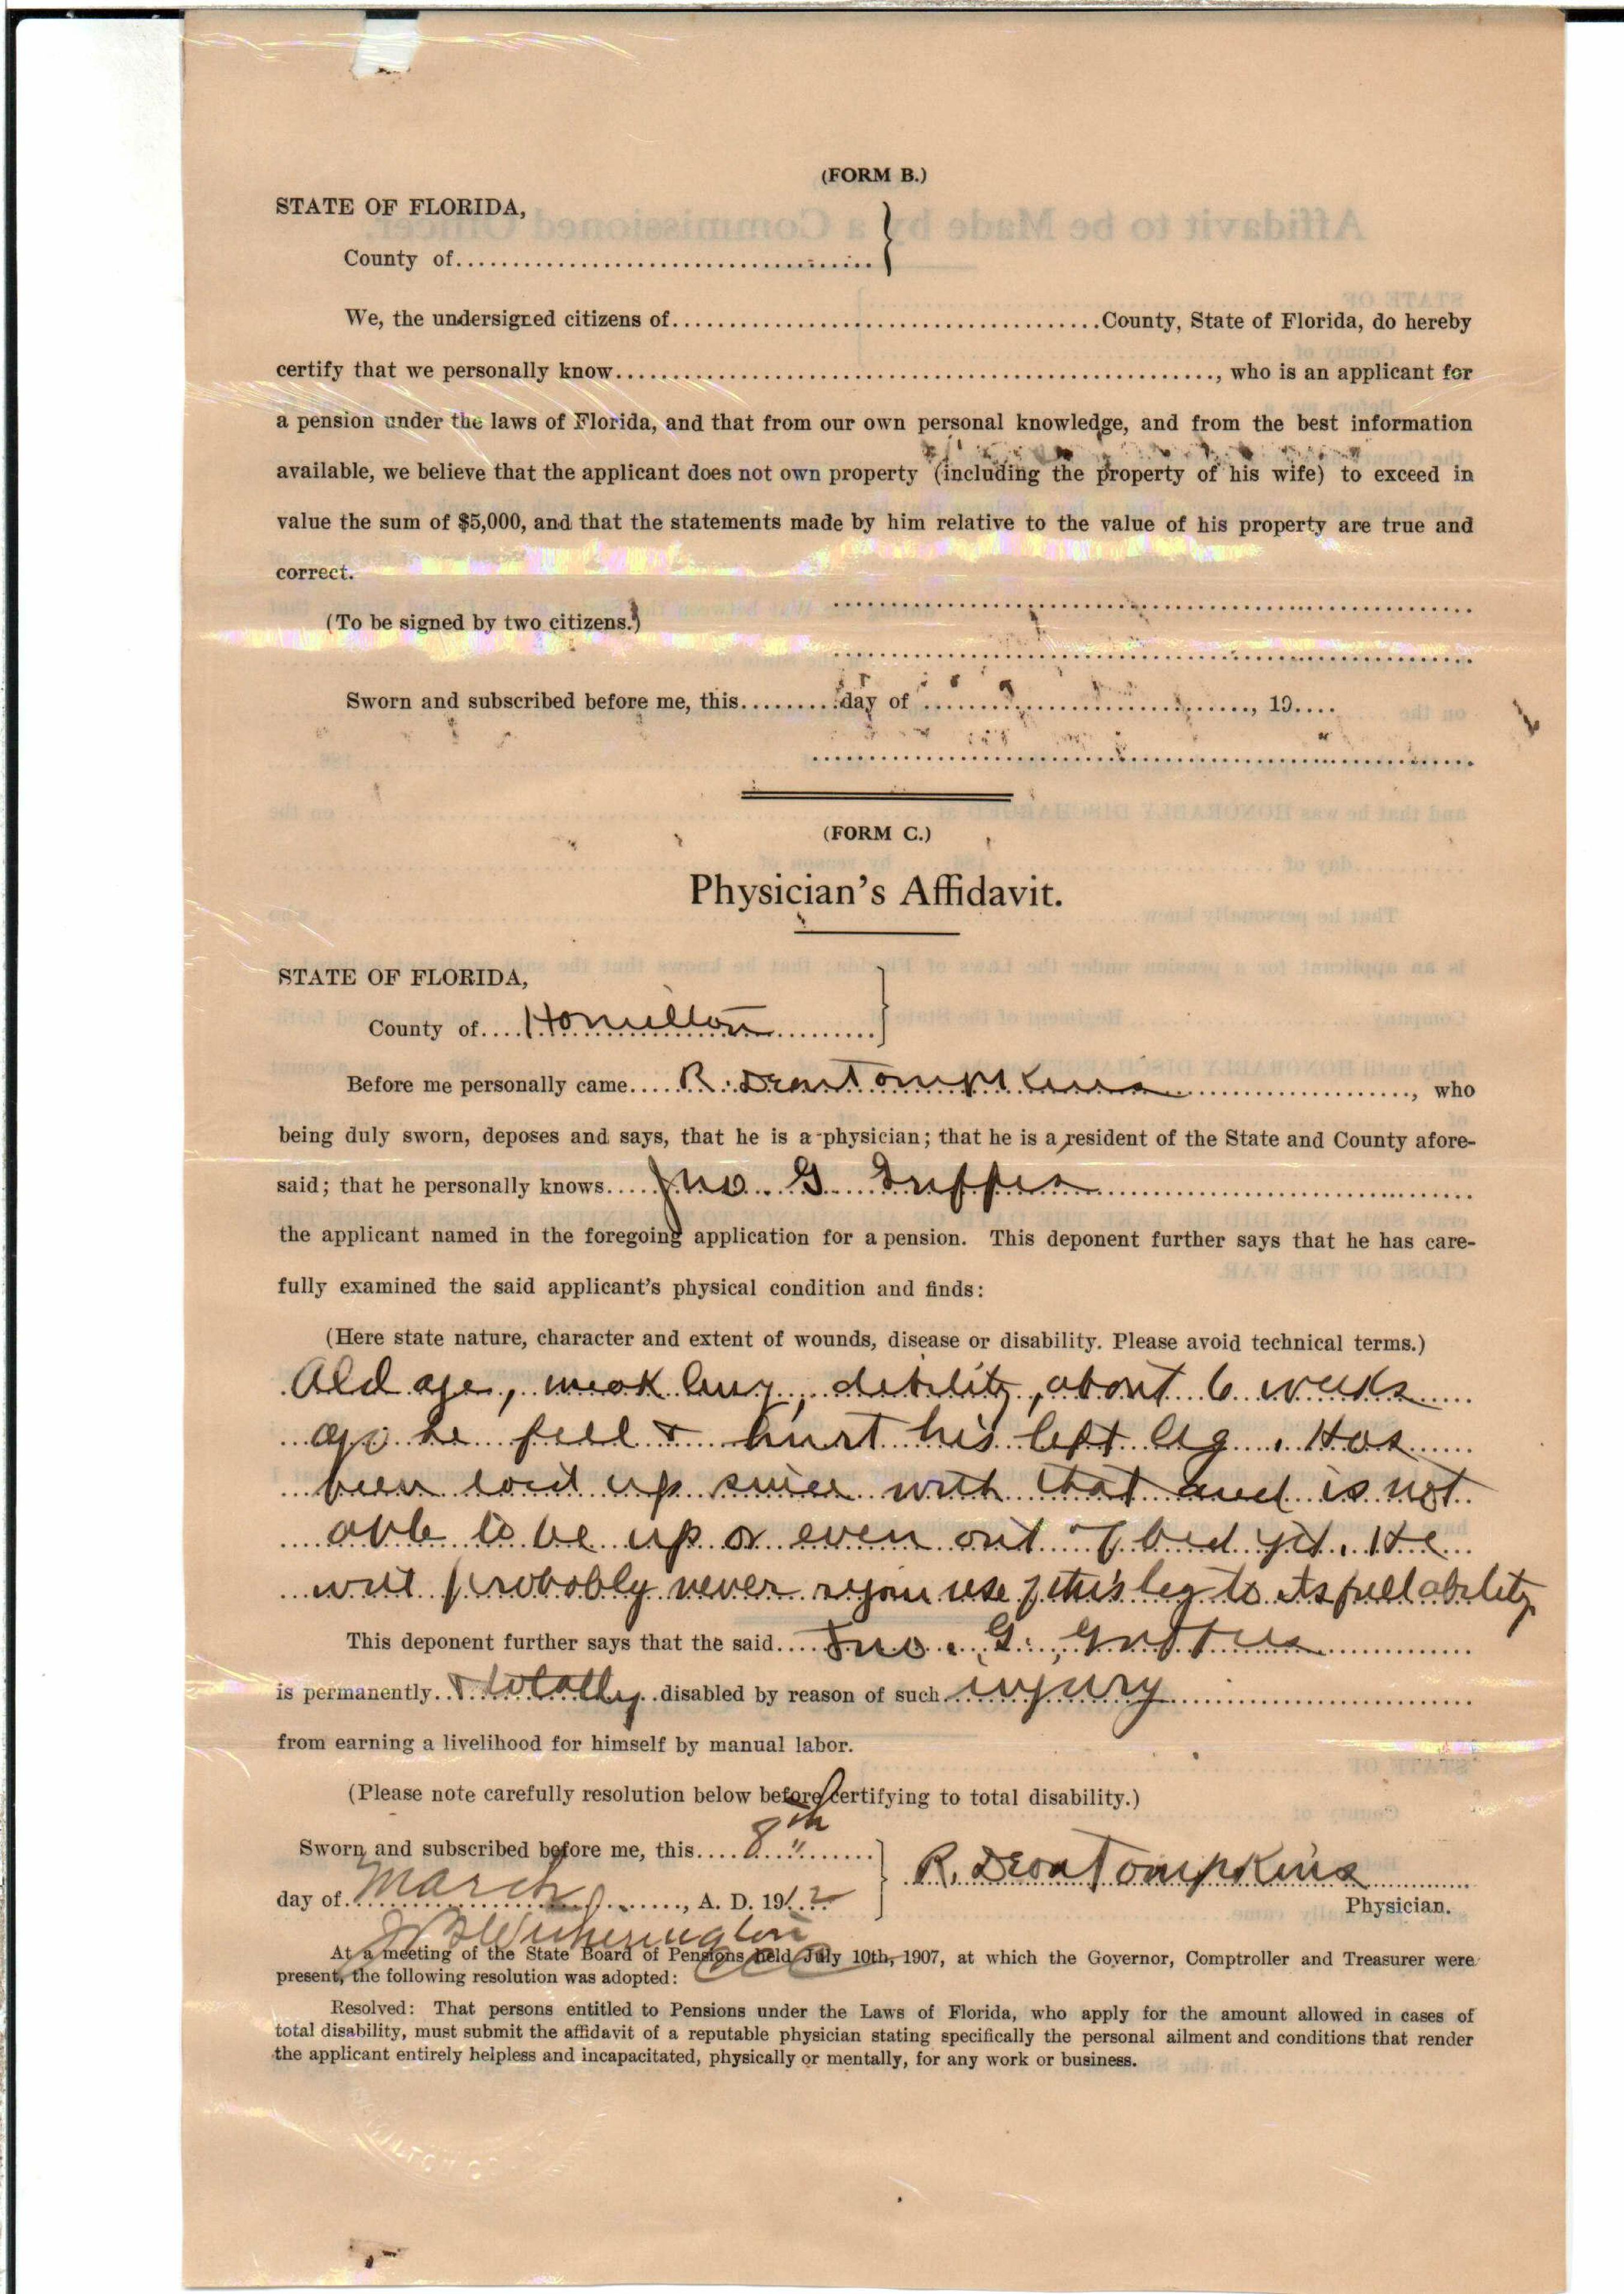 (FORM B.)
STATE OF FLORIDA,
County of
We, the undersigned citizens of County, State of Florida, do hereby
certify that we personally know , who is an applicant for
a pension under the laws of Florida, and that from our own personal knowledge, and from the best information
available, we believe that the applicant does not own property (including the property of his wife) to exceed in
value the sum of $5,000, and that the statements made by him relative to the value of his property are true and
correct.
(To be signed by two citizens.)
Sworn and subscribed before me, this day of , 19
(FORM C.)
Physician's Affidavit.
STATE OF FLORIDA,
County of Hamilton
Before me personally came R. Dean Tompkins , who
being duly sworn, deposes and says, that he is a physician; that he is a resident of the State and County afore-
said; that he personally knows Jno. G
the applicant named in the foregoing application for a pension. This deponent further says that he has care-
fully examined the said applicant's physical condition and finds:
(Here state nature, character and extent of wounds, disease or disability. Please avoid technical terms.)
Old age, weak lung, debility, about 6 weeks
ago he fell & hurt his left leg. Has
been laid up since with that and is not
able to be up or even out of bed yet. He
will probably never regain use of this leg to its full ability
This deponent further says that the said Jno. G.
is permanently & totally disabled by reason of such injury
from earning a livelihood for himself by manual labor.
(Please note carefully resolution below before certifying to total disability.)
Sworn and subscribed before me, this 8th
day of March , A. D. 1912
R. Dean Tompkins
Physician.
Witherington
At a meeting of the State Board of Pensions held July 10th, 1907, at which the Governor, Comptroller and Treasurer were
present, the following resolution was adopted:
Resolved: That persons entitled to Pensions under the Laws of Florida, who apply for the amount allowed in cases of
total disability, must submit the affidavit of a reputable physician stating specifically the personal ailment and conditions that render
the applicant entirely helpless and incapacitated, physically or mentally, for any work or business.